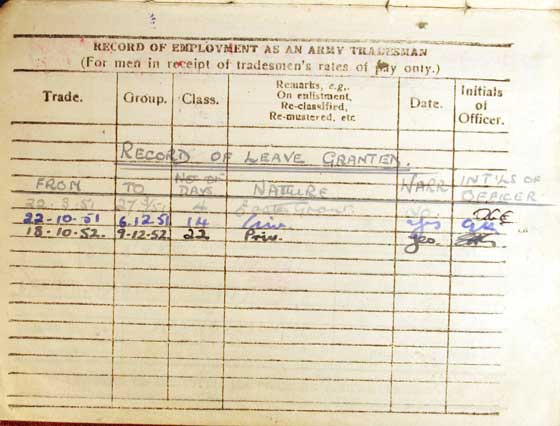 RECORD OF EMPLOYMENT AS AN ARMY TRADESMAN
(For men in receipt of tradesmen's rates of pay only.)
Trade. Group. Class. Remarks, e.g., On enlistment, Re-classified, Re-mustered, etc Date. Initials of Officer.
RECORD OF LEAVE GRANTED.
FROM TO No OF DAYS NATURE WARR INT'LS OF OFFICER
22-3-51 4 Easter Grant No.
22-10-51 6.12.51 14 Priv. yes
18-10-52. 9-12-52. 22 Priv. yes.